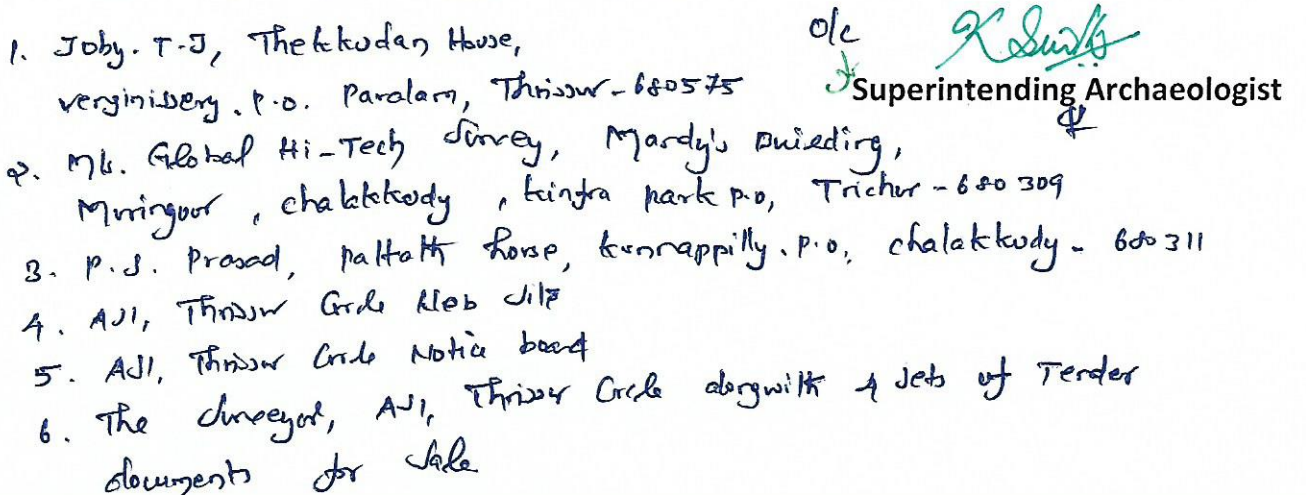 o/c
Superintending Archaeologist
1. Joby. T-J, Thekkudan House,
verginissery. P.O. Paralam, Thrissur - 680575
2. M/s. Global Hi-Tech Survey, Mardy's Building,
Muringoor, chalakkody, kinfra park p.o, Trichur - 680 309
3. P.S. Prasad, Paltath house, kunnappilly. P.O, chalakkudy - 680311
4. ASI, Thrissur Circle Web site
5. ASI, Thrissur Circle Notice board
6. The surveyor, ASI, Thrissur Circle alongwith 4 sets of Tender
documents for sale